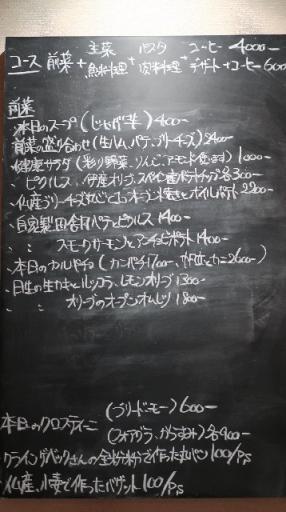 主菜 パスタ コーヒー 4000-
コース 前菜 + 魚料理 + 肉料理 + デザート + コーヒー 600
前菜
・本日のスープ (じゃがいも) 400-
・前菜の盛り合わせ (生ハム、パテ、ブリーチーズ) 2400-
・健康サラダ (彩り野菜、りんご、アーモンド) 1000-
・ピクルス、伊産オリーブ、スペイン産ポテトチップ 各300-
・仏産ブリーチーズ オーブン焼き オイルポット 2200-
・自家製田舎風パテとピクルス 1400-
・〃 スモークサーモンとアンチョビポテト 1400-
・本日のカルパッチョ (カンパチ 1700-、 2600-)
・日生の生カキとルッコラ、レモンオリーブ 1300-
・〃 オリーブのオープンオムレツ 1800-
本日のクロスティーニ (ブリードモー) 600-
(フォアグラ、からすみ) 各900-
クライングベックさんの全粒粉で作った丸パン 100/Ps
仏産、小麦で作ったバゲット 100/Ps